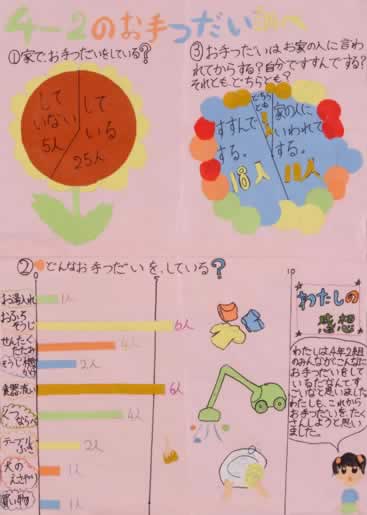 4-2のお手つだいしらべ
①家でお手つだいをしている?
して
いない
5人
して
いる
25人
③お手つだいはお家の人に言わ
れてからする?自分ですすんでする?
それともどちらとも?
どちら
とも
すすんで
する。
18人
家の人に
いわれて
する。
11人
②どんなお手つだいを、している?
0
5
10
お湯入れ
1人
おふろ
そうじ
6人
せんたく
たたみ
4人
2人
食器洗い
6人
ならべ
4人
テーブル
ふき
2人
犬の
えさやり
1人
買い物
1人
わたしの
感想
わたしは4年2組
のみんながこんなに
お手つだいをして
いるだなんてす
ごいなと思いました
わたしも、これから
お手つだいを、たく
さんしようと思い
ました。